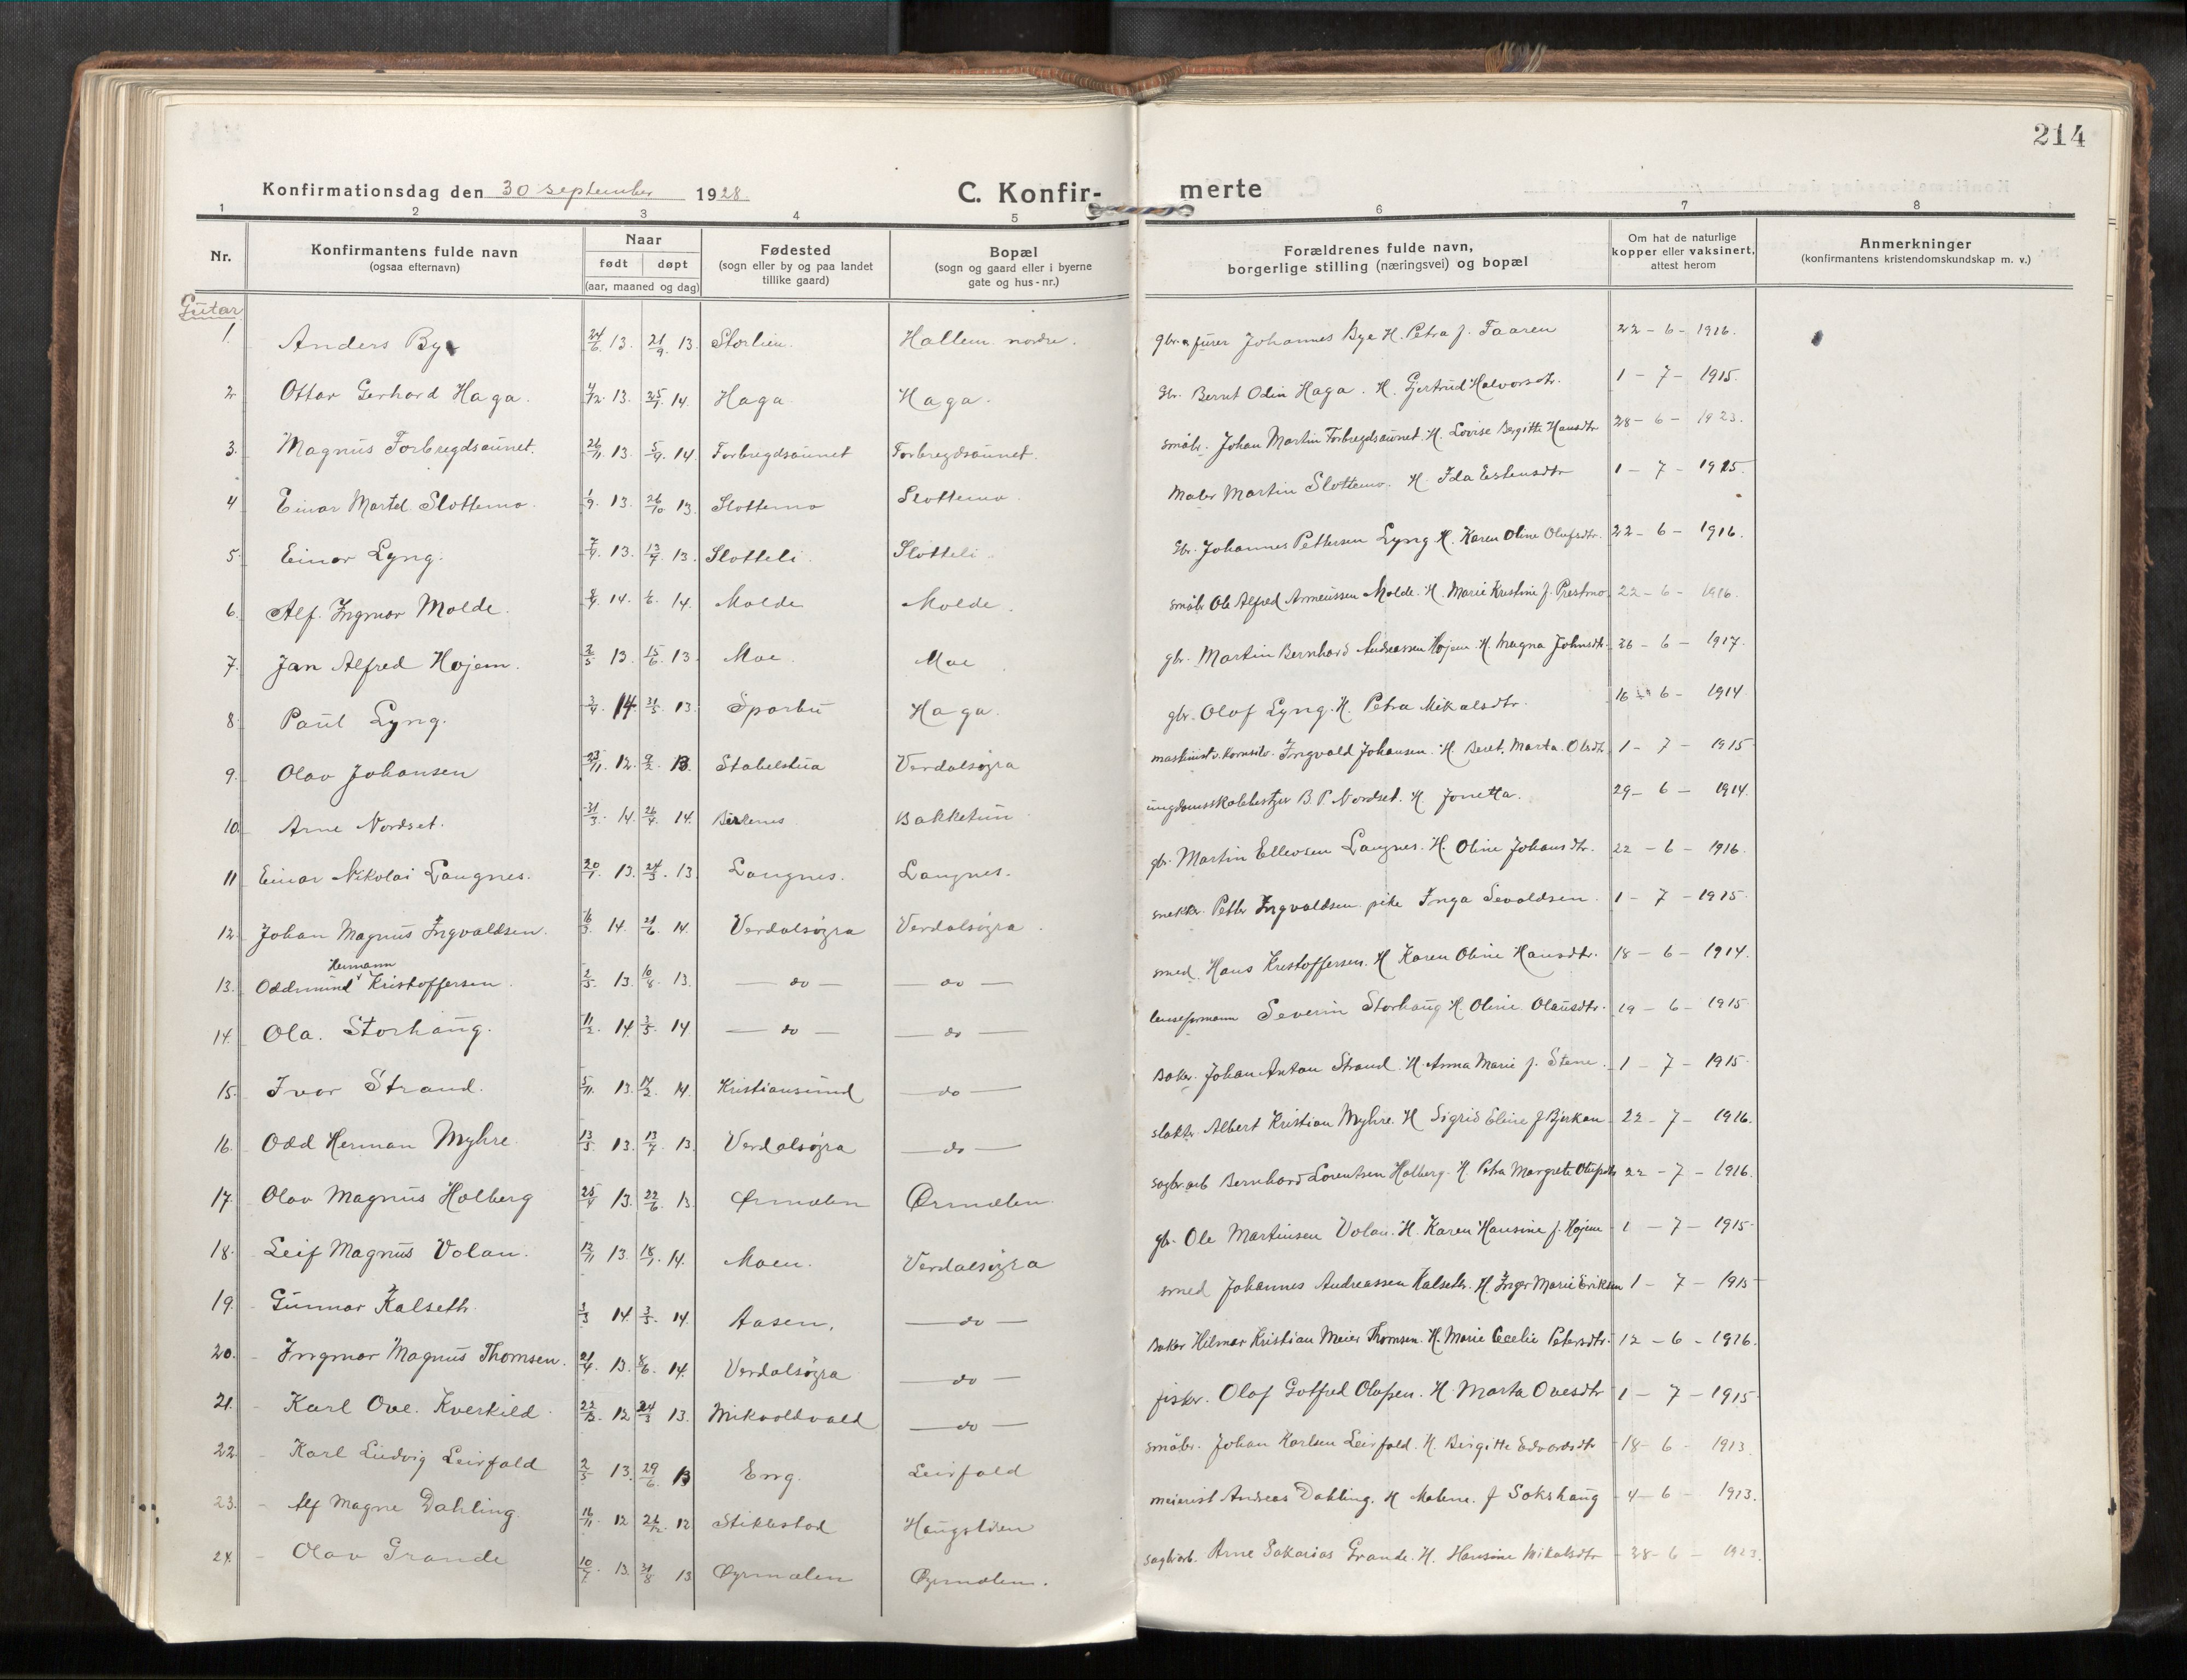 214
Konfirmationsdag den 30 september 1928
C. Konfir-merte
1 2 3 4 5 6 7 8
Nr.
Konfirmantens fulde navn
(ogsaa efternavn)
Naar
født døpt
(aar, maaned og dag)
Fødested
(sogn eller by og paa landet
tillike gaard)
Bopæl
(sogn og gaard eller i byerne
gate og hus-nr.)
Forældrenes fulde navn,
borgerlige stilling (næringsvei) og bopæl
Om hat de naturlige
kopper eller vaksinert,
attest herom
Anmerkninger
(konfirmantens kristendomskundskap m. v.)
Gutar
1. Anders Bye 24/6 13. 21/9 13. Storlien. Hallem nordre. Johannes Bye H. Petra f. Faaren 22-6-1916.
2 Ottar Gerhard Haga. 4/12 13. 25/1 14. Haga Haga. Gbr. Bernt Odin Haga. H. Gjertrud Halvorsdtr. 1-7-1915.
3. Magnus Forbregdsaunet. 26/11 13. 5/9 14. Forbregdsaunet Forbregdsaunet. småbr. Johan Martin Forbregdsaunet. H. Lovise Bergitte Hansdtr 28-6-1923.
4 Einar Martel Slottemo. 1/9 13. 26/10 13. Slottemo Slottemo. Maler Martin Slottemo. H. Ida Estensdtr 1-7-1915.
5. Einar Lyng. 7/4 13. 13/7 13. Slotteli. Slotteli. Gbr. Johannes Pettersen Lyng H. Karen Oline Olufsdtr. 22-6-1916.
6. Alf. Ingmar Molde. 8/4 14. 1/6 14. Molde Molde. småbr Ole Alfred Arneussen Molde. H. Marie Kristine f. Prestmo. 22-6-1916.
7. Jan Alfred Højem. 2/5 13. 15/6 13. Moe. Moe gbr. Martin Bernhard Andreassen Højem H. Magna Johnsdtr. 26-6-1917.
8. Paul Lyng. 3/4. 14. 31/5 13. Sparbu Haga. gbr. Olof Lyng. H. Petra Mikalsdtr. 16-6-1914
9. Olav Johansen 23/11. 12. 9/2. 13. Stabelstua Verdalsøgra Ingvald Johansen. H. Beret. Marta Olsdtr 1-7-1915
10. Arne Nordset. 31/3. 14. 26/4. 14. Birkenes Bakketun ungdomsskolebestyr B. P. Nordset. H. Jonetta. 29-6-1914.
11 Einar Nikolai Langnes. 20/1. 13. 24/3. 13 Langnes. Langnes. gbr. Martin Ellevsen Langnes. H. Oline Johansdtr. 22-6-1916.
12. Johan Magnus Ingvaldsen. 16/3 14. 21/6 14. Verdalsøgra Verdalsøgra. snekker. Petter Ingvaldsen pike Inga Sevaldsen. 1-7-1915.
13. Oddmund Hermann Kristoffersen. 2/5 13. 10/8. 13. — do — — do — smed. Hans Kristoffersen. H Karen Oline Hansdtr. 18-6-1914.
14. Ola. Storhaug. 11/2. 14. 3/5. 14 — do — — do — Severin Storhaug H. Oline Olausdtr. 19-6-1915
15. Ivar Strand. 5/11. 13. 14/2. 14. Kristiansund — do — Baker. Johan Anton Strand. H. Anna Marie f. Stene. 1-7-1915.
16. Odd Herman Myhre. 13/5. 13. 13/7. 13. Verdalsøgra — do — slakter. Albert Kristian Myhre. H Sigrid Eline f Bjerkan 22-7-1916.
17. Olav Magnus Holberg 25/4 13. 22/6 13 Ørmælen Ørmælen. sagbr.arb Bernhard Lorentsen Holberg. H Petra Margrete Olufsdtr 22-7-1916.
18. Leif Magnus Volan. 12/11 13. 18/1. 14. Moen. Verdalsøgra gb. Ole Martinsen Volan. H. Karen Hansine f. Højem 1-7-1915.
19. Gunnar Kalseth. 1/3 14. 3/5. 14. Aasen. — do — smed Johannes Andreassen Kalseth. H. Inger Marie Eriksen 1-7-1915
20. Ingmar Magnus Thomsen. 21/4 13. 8/6. 14. Verdalsøgra — do — Baker Hilmar Kristian Meier Thomsen. H. Marie Cecelie Petersdtr. 12-6-1916.
21. Karl Ove. Kverkild. 22/12. 12 24/3 13. Mikvoldvald — do — fisker. Olaf Gotfred Olufsen. H. Marta Ovesdtr 1-7-1915.
22. Karl Ludvig Leirfald 2/5 13. 29/6. 13 Eng. Leirfald småbr. Johan Karlsen Leirfald. H. Birgitte Edvardsdtr 18-6-1913.
23. Alf Magne Dahling. 16/11. 12 26/12. 12 Stiklestad Haugslien meierist Andreas Dahling. H Malene. f Sokshaug 4-6-1913.
24. Olav Grande 10/7. 13. 31/8 13 Øyrmælen Øyrmælen. sagbr.arb. Arne Sakarias Grande. H. Hansine Mikalsdtr 28-6-1923.